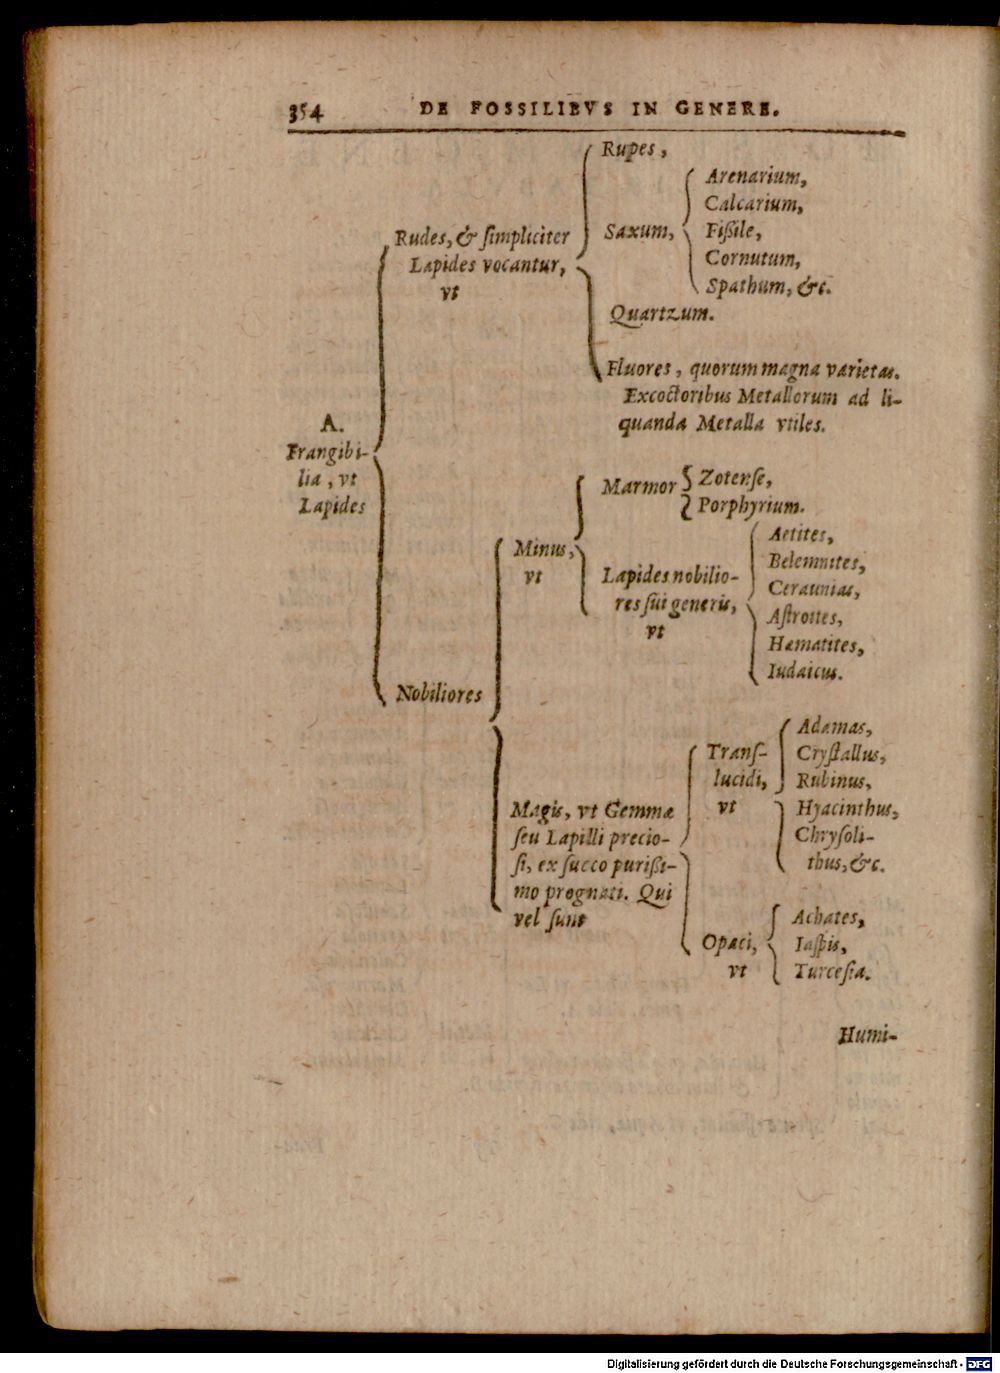 354 DE FOSSILIBVS IN GENERE.
Rupes,
Arenarium,
Calcarium,
Rudes, & ſimpliciter
Saxum,
Fißile,
Lapides vocantur,
Cornutum,
vt
Spathum, &c.
Quartzum.
Fluores, quorum magna varietas.
Excoctoribus Metallorum ad li-
quanda Metalla vtiles.
A.
Frangibi-
lia, vt
Lapides
Marmor
Zotenſe,
Porphyrium.
Minus,
vt
Lapides nobilio-
res ſui generis,
vt
Aetites,
Belemnites,
Ceraunias,
Aſtroites,
Hæmatites,
Iudaicus.
Nobiliores
Magis, vt Gemmæ
ſeu Lapilli precio-
ſi, ex ſucco purißi-
mo prognati. Qui
vel ſunt
Tranſ-
lucidi,
vt
Adamas,
Cryſtallus,
Rubinus,
Hyacinthus,
Chryſoli-
thus, &c.
Opaci,
vt
Achates,
Iaſpis,
Turceſia.
Humi-
Digitalisierung gefördert durch die Deutsche Forschungsgemeinschaft - DFG